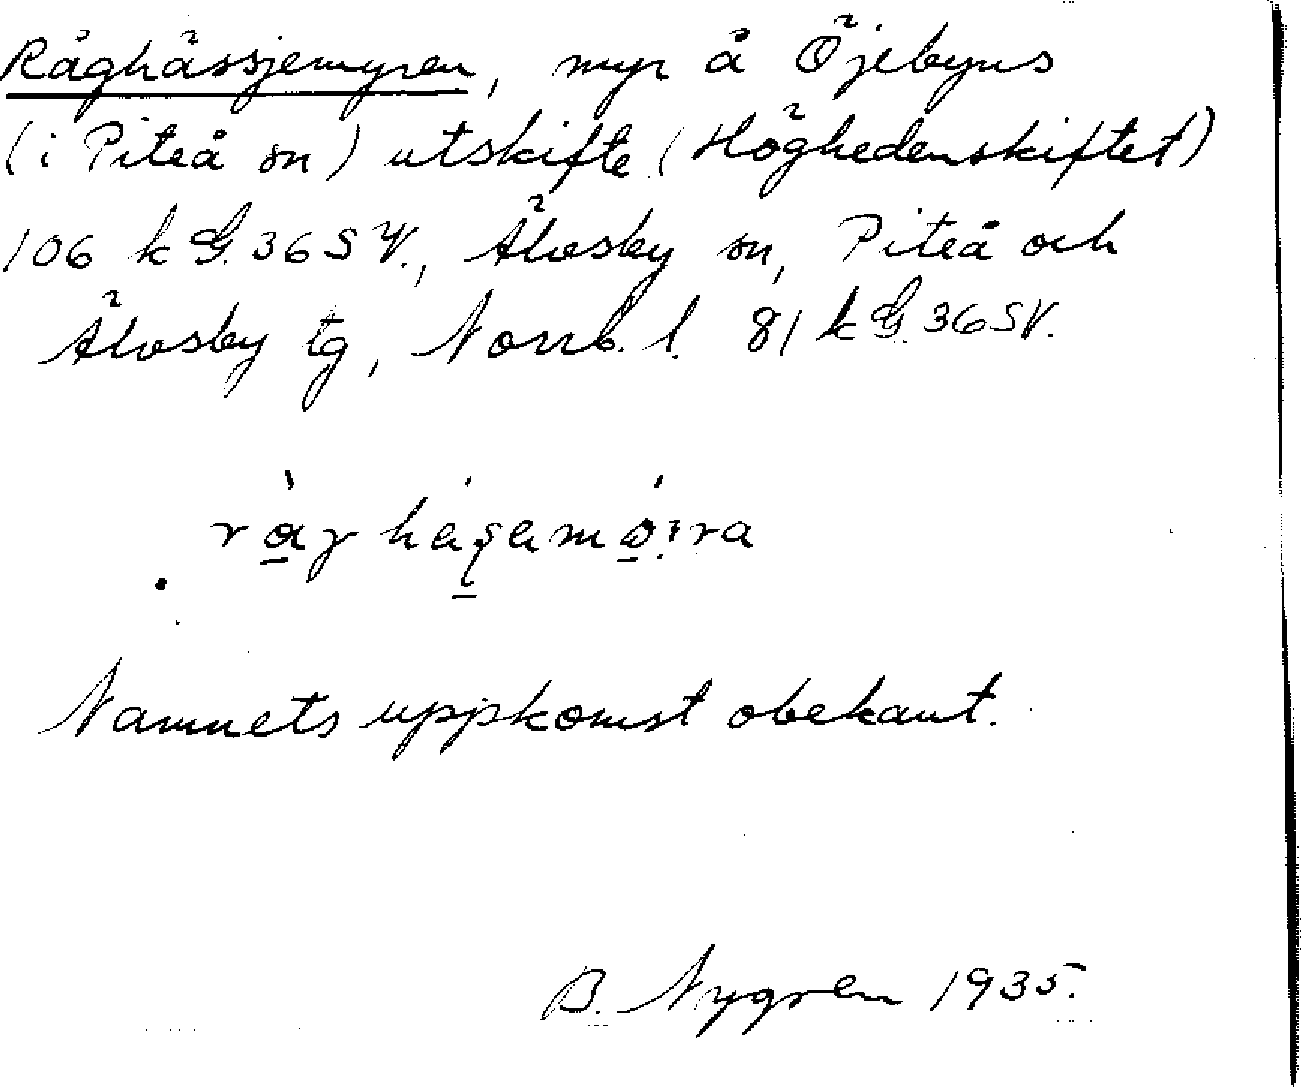 Råghässjemyren, myr å Öjebyns
(i Piteå sn) utskifte (Höghedenskiftet)
106 k G. 36 S V., Älvsby sn, Piteå och
Älvsby tg, Norrb. l. 81 k G. 36 SV.
Namnets uppkomst obekant.
B. Nygren 1935.